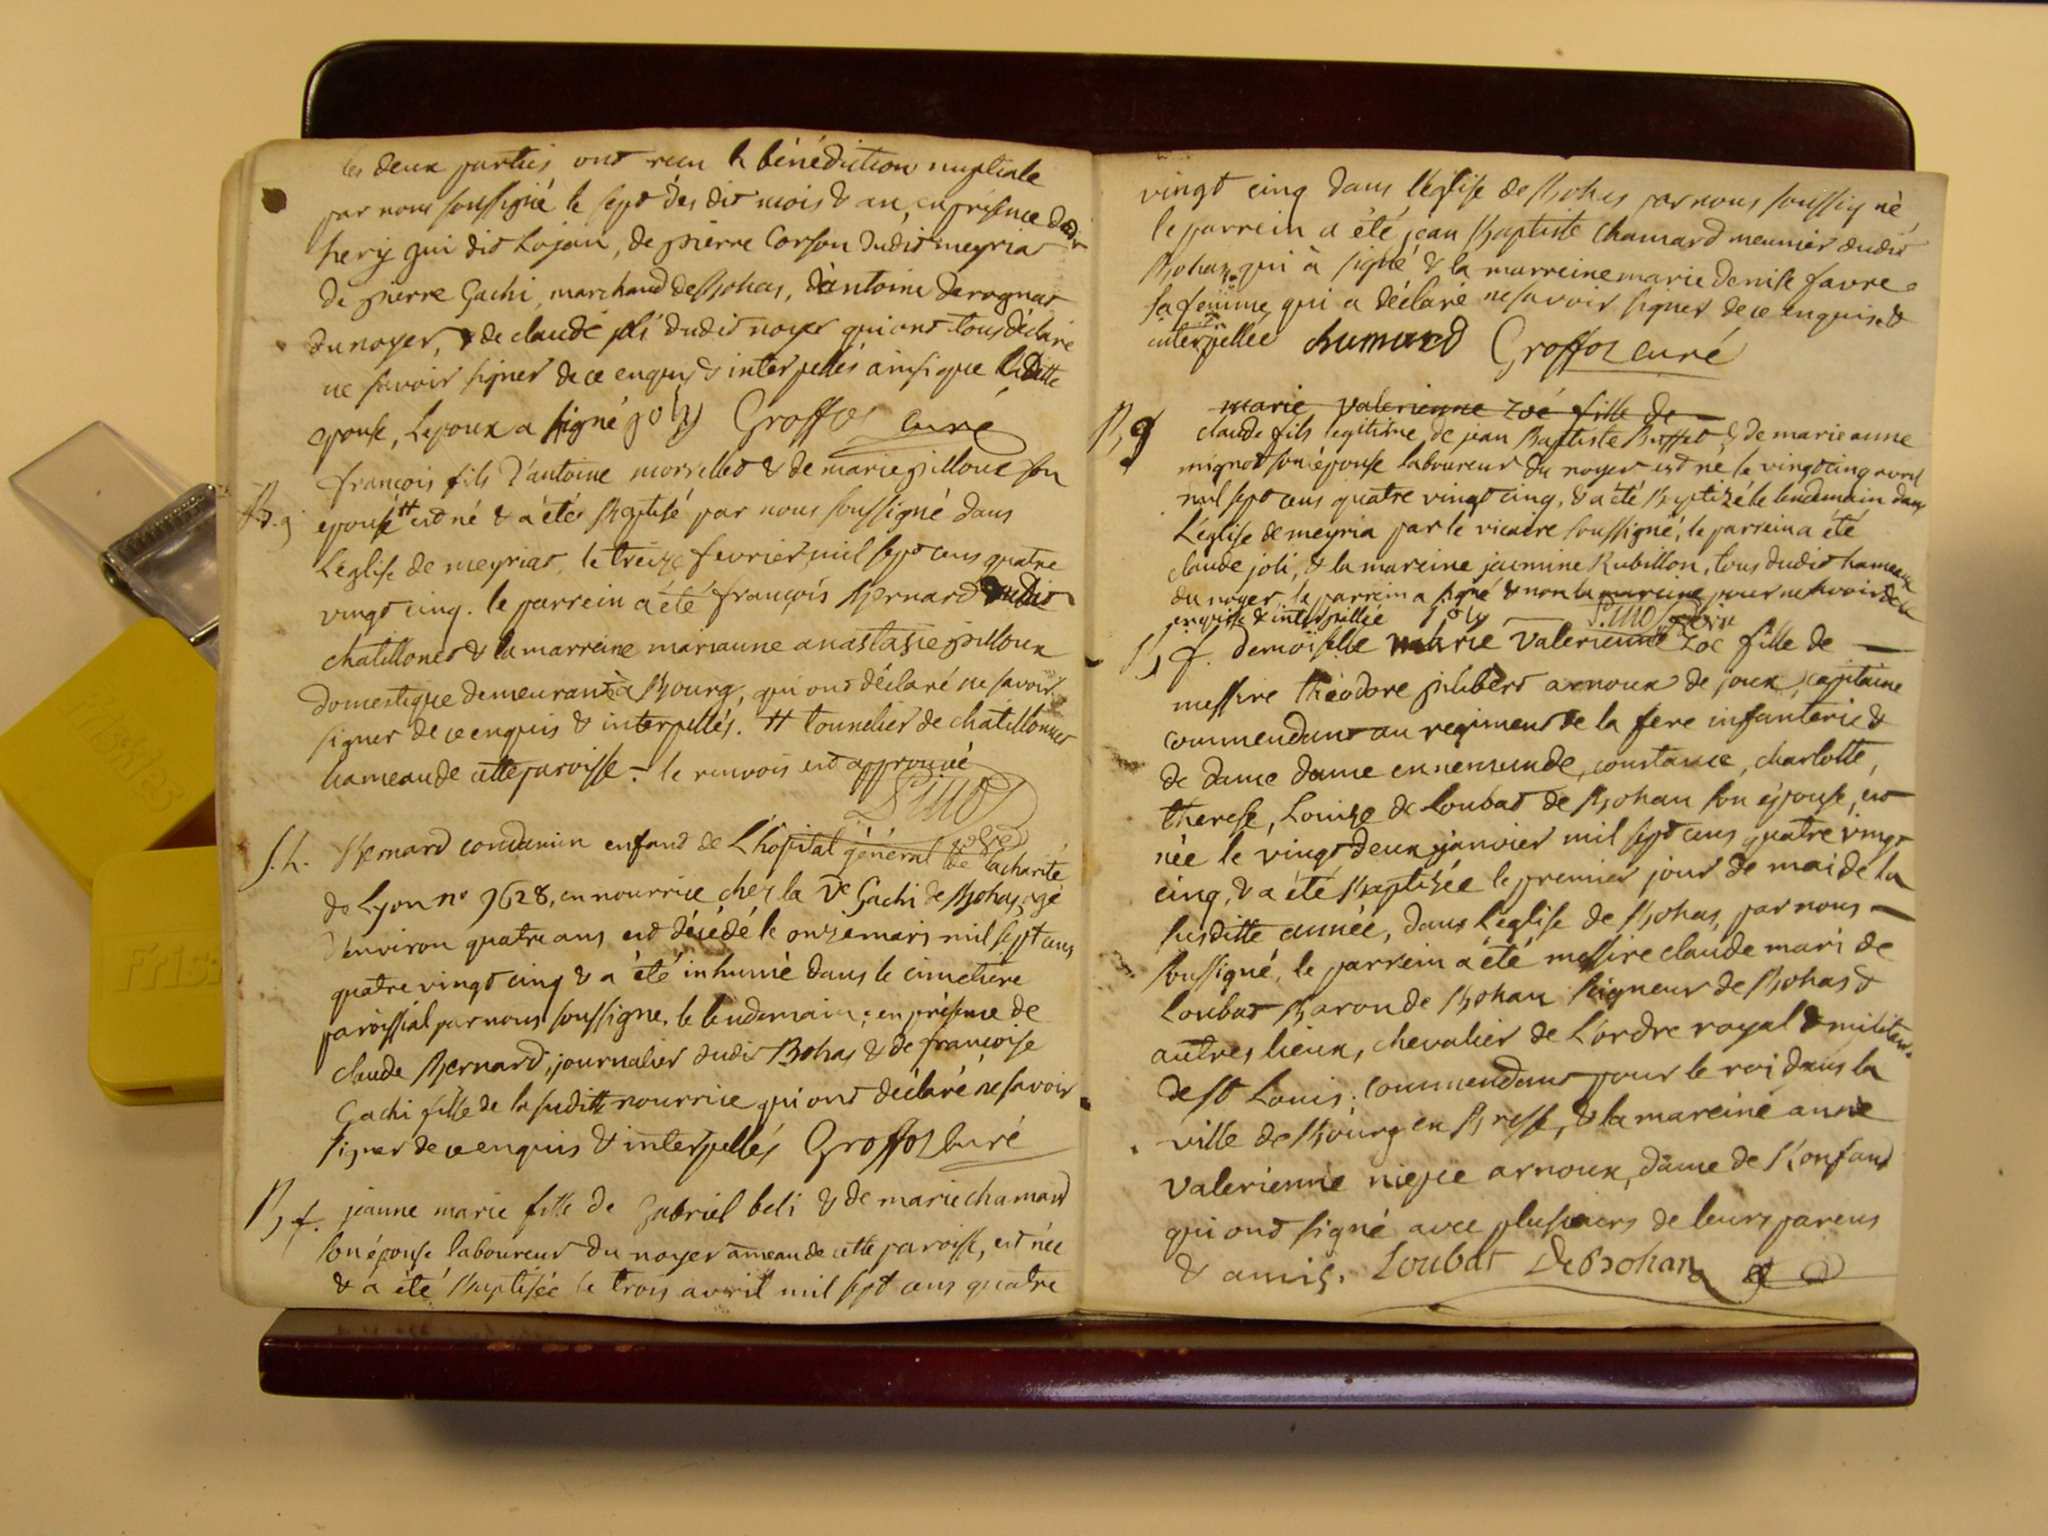 les deux parties ont recu la bénédiction nuptiale
par nous soussigné le sept des dit mois & an, en présence de
hery gui dit Lajan, de pierre Corson dudit meyria
de pierre Gachi marchand de Bohas, d'antoine derognat
du noyer, & de claude joli dudit noyer qui ont tous déclaré
ne savoir signer de ce enquis & interpellés ainsi que laditte
epouse, Lepoux a signé joly Groffoz curé
B. g.
francois fils d'antoine morrellet & de marie pilloux son
epouse # est né & a été Baptisé par nous soussigné dans
L'église de meyriat, le treize fevrier mil sept cens quatre
vingt cinq. le parrein a été françois Bernard dudit
chatillonet & la marreine marianne anastasie pilloux
domestique demeurant à Bourg, qui ont déclaré ne savoir
signer de ce enquis & interpellés. # tounelier de chatillonnet
hameau de cette paroisse - le renvois est approuvé
S. h.
Bernard condamin enfant de L'hôpital général de la charité
de Lyon n° 9628, en nourrice chez la Ve Gachi de Bohas, agé
d'environ quatre ans est décédé le onze mars mil sept cens
quatre vingt cinq & a été inhumé dans le cimetiere
paroissial par nous soussigné, le lendemain, en présence de
claude Bernard, journalier dudit Bohas & de françoise
Gachi fille de la suditte nourrice qui ont déclaré ne savoir
signer de ce enquis & interpellés Groffoz Curé
B, f.
jeanne marie fille de Gabriel beli & de marie chamard
son épouse laboureur du noyer ameau de cette paroisse, est née
& a été Baptisée le trois avril mil sept cens quatre
vingt cinq dans l'église de Bohas par nous soussigné,
le parrein a été jean Baptiste chamard meunier dudit
Bohas qui à signé & la marreine marie denise favre
sa femme, qui a déclaré ne savoir signer de ce enquise &
interpellée chamard Groffoz curé
marie valerienne zoé fille de
B, g
claude fils legitime de jean Baptiste Buffet & de marie anne
mignot son épouse laboureur du noyer est né le vingt cinq avril
mil sept cens quatre vingt cinq, & a été Baptizé le lendemain dans
L'église de meyria par le vicaire soussigné, le parrein a été
claude joli, & la mareine jasmine Rubillon, tous dudit hameau
du noyer, le parrein a signé & non la mareine pour ne savoir de ce
enquise & interpellée joly
B, f.
demoiselle marie valerienne zoé fille de
messire théodore philibert arnoux de joux, capitaine
commendant au regiment de la fere infanterie &
de dame dame ennemunde, constance, charlotte,
therese, Louize de Loubat de Bohan son épouse, est
née le vingt deux janvier mil sept cens quatre vingt
cinq, & a été Baptizée le premier jour de mai de la
susditte année, dans l'église de Bohas, par nous
soussigné, le parrein a été messire claude mari de
Loubat Baron de Bohan seigneur de Bohas &
autres lieux, chevalier de L'ordre royal & militaire
de st Louis, commendant pour le roi dans la
ville de Bourg en Bresse, & la mareine anne
valerienne niepce arnoux, dame de Ronfand
qui ont signé avec plusieurs de leurs parens
& amis. Loubat De Bohan